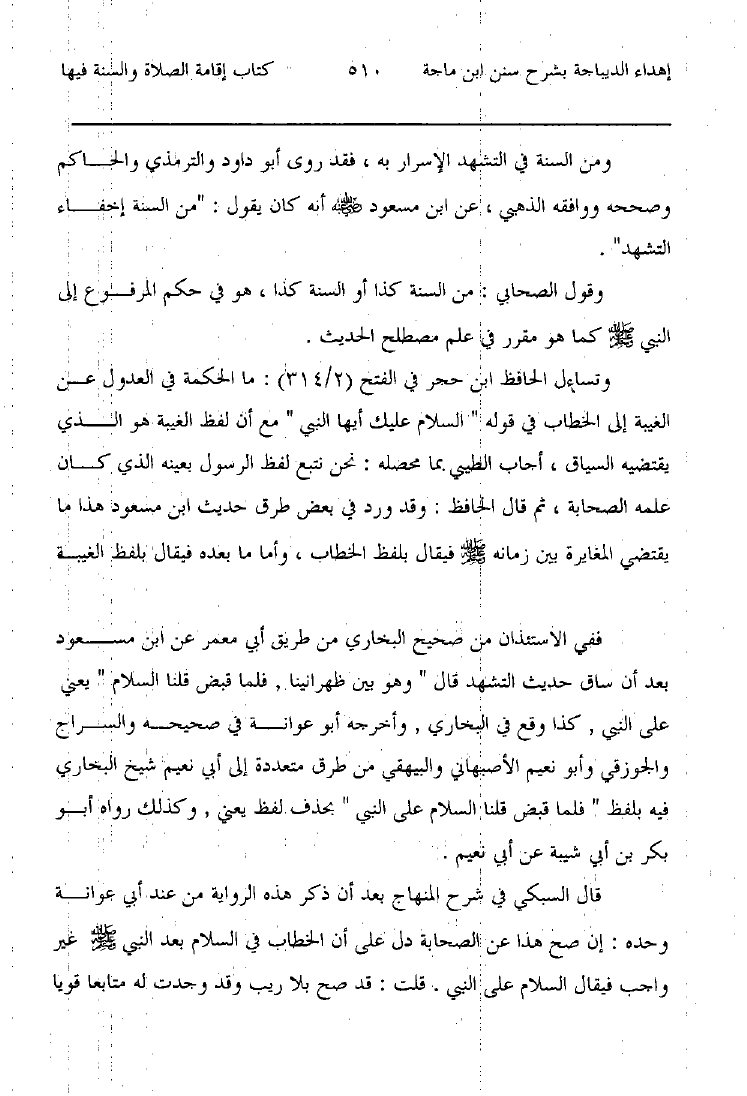 إهداء الديباجة بشرح سنن ابن ماجة ٥١٠ كتاب إقامة الصلاة والسنة فيها
ومن السنة في التشهد الإسرار به ، فقد روى أبو داود والترمذي والحاكم
وصححه ووافقه الذهبي ، عن ابن مسعود ﷺ أنه كان يقول : "من السنة إخفاء
التشهد" .
وقول الصحابي : من السنة كذا أو السنة كذا ، هو في حكم المرفوع إلى
النبي ﷺ كما هو مقرر في علم مصطلح الحديث .
وتساءل الحافظ ابن حجر في الفتح (٣١٤/٢) : ما الحكمة في العدول عن
الغيبة إلى الخطاب في قوله " السلام عليك أيها النبي " مع أن لفظ الغيبة هو الذي
يقتضيه السياق ، أجاب الطيبي بما محصله : نحن نتبع لفظ الرسول بعينه الذي كان
علمه الصحابة ، ثم قال الحافظ : وقد ورد في بعض طرق حديث ابن مسعود هذا ما
يقتضي المغايرة بين زمانه ﷺ فيقال بلفظ الخطاب ، وأما ما بعده فيقال بلفظ الغيبة
ففي الاستئذان من صحيح البخاري من طريق أبي معمر عن ابن مسعود
بعد أن ساق حديث التشهد قال " وهو بين ظهرانينا , فلما قبض قلنا السلام " يعني
على النبي , كذا وقع في البخاري , وأخرجه أبو عوانة في صحيحه والسراج
والجوزقي وأبو نعيم الأصبهاني والبيهقي من طرق متعددة إلى أبي نعيم شيخ البخاري
فيه بلفظ " فلما قبض قلنا السلام على النبي " بحذف لفظ يعني , وكذلك رواه أبو
بكر بن أبي شيبة عن أبي نعيم .
قال السبكي في شرح المنهاج بعد أن ذكر هذه الرواية من عند أبي عوانة
وحده : إن صح هذا عن الصحابة دل على أن الخطاب في السلام بعد النبي ﷺ غير
واجب فيقال السلام على النبي . قلت : قد صح بلا ريب وقد وجدت له متابعا قويا